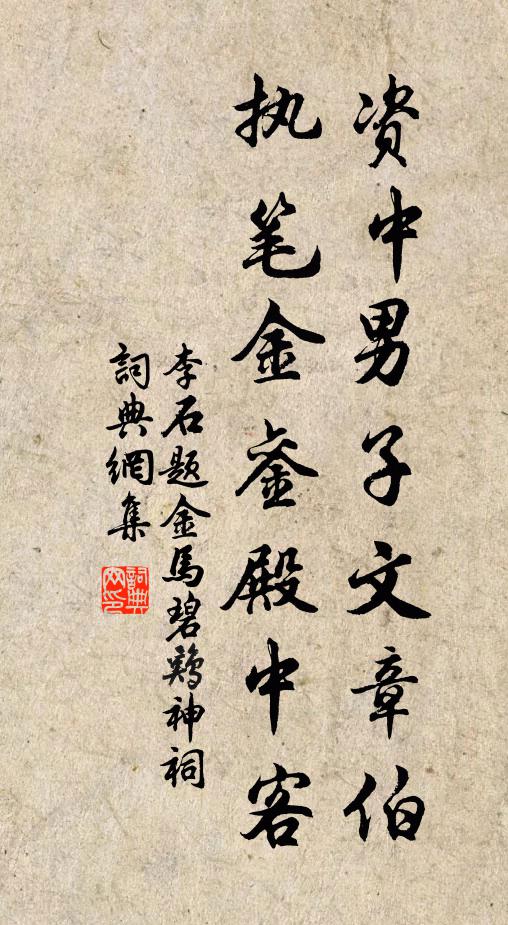 资中男子文章伯
执笔金銮殿中客
李石题金马碧鸡神祠
詞典網集
詞典
网印